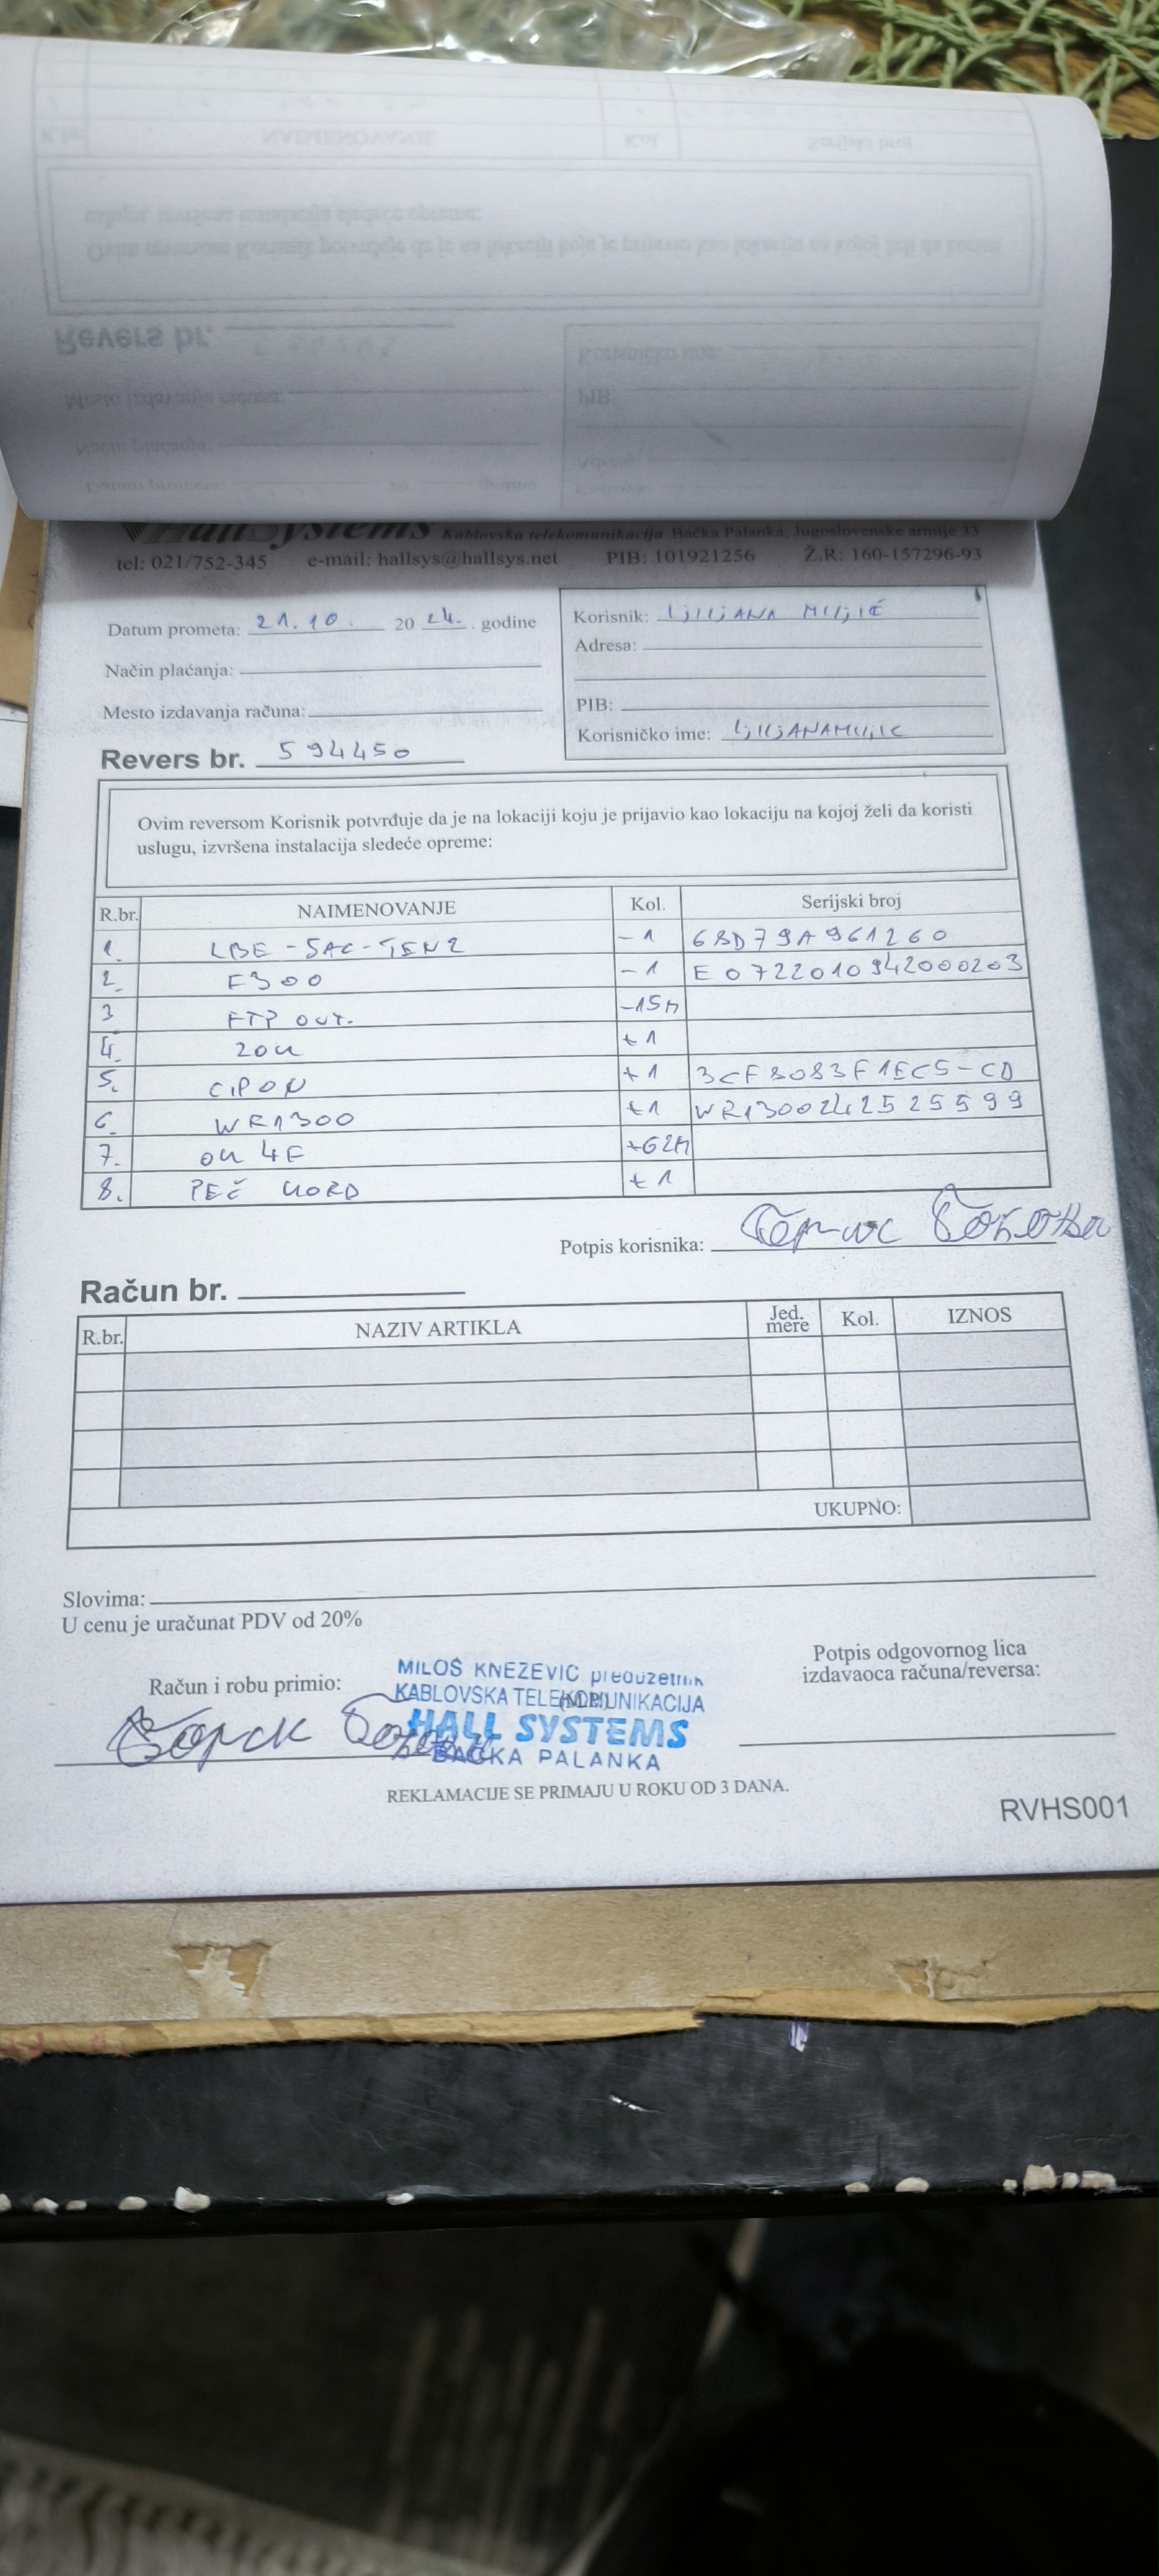 Hall Systems Kablovska telekomunikacija Bačka Palanka, Jugoslovenske armije 33
tel: 021/752-345 e-mail: hallsys@hallsys.net PIB: 101921256 Ž.R: 160-157296-93
Datum prometa: 21.10. 20 24. godine
Način plaćanja:
Mesto izdavanja računa:
Revers br. 594450
Korisnik: LJILJANA MILJIĆ
Adresa:
PIB:
Korisničko ime: LJILJANAMILJIC
Ovim reversom Korisnik potvrđuje da je na lokaciji koju je prijavio kao lokaciju na kojoj želi da koristi
uslugu, izvršena instalacija sledeće opreme:
R.br. NAIMENOVANJE Kol. Serijski broj
1. LBE-5AC-GEN2 -1 68D79A961260
2. F300 -1 E0722010942000203
3 FTP OUT. -15M
4. ZOK +1
5. CIPON +1 3CF8083F1EC5-CD
6. WR1300 +1 WR1300242525599
7. OK 4F +62M
8. PEČ KORD +1
Potpis korisnika:
Račun br.
R.br. NAZIV ARTIKLA Jed. mere Kol. IZNOS
UKUPNO:
Slovima:
U cenu je uračunat PDV od 20%
Račun i robu primio:
MILOŠ KNEŽEVIĆ preduzetnik
KABLOVSKA TELEKOMUNIKACIJA
HALL SYSTEMS
BAČKA PALANKA
Potpis odgovornog lica
izdavaoca računa/reversa:
REKLAMACIJE SE PRIMAJU U ROKU OD 3 DANA.
RVHS001